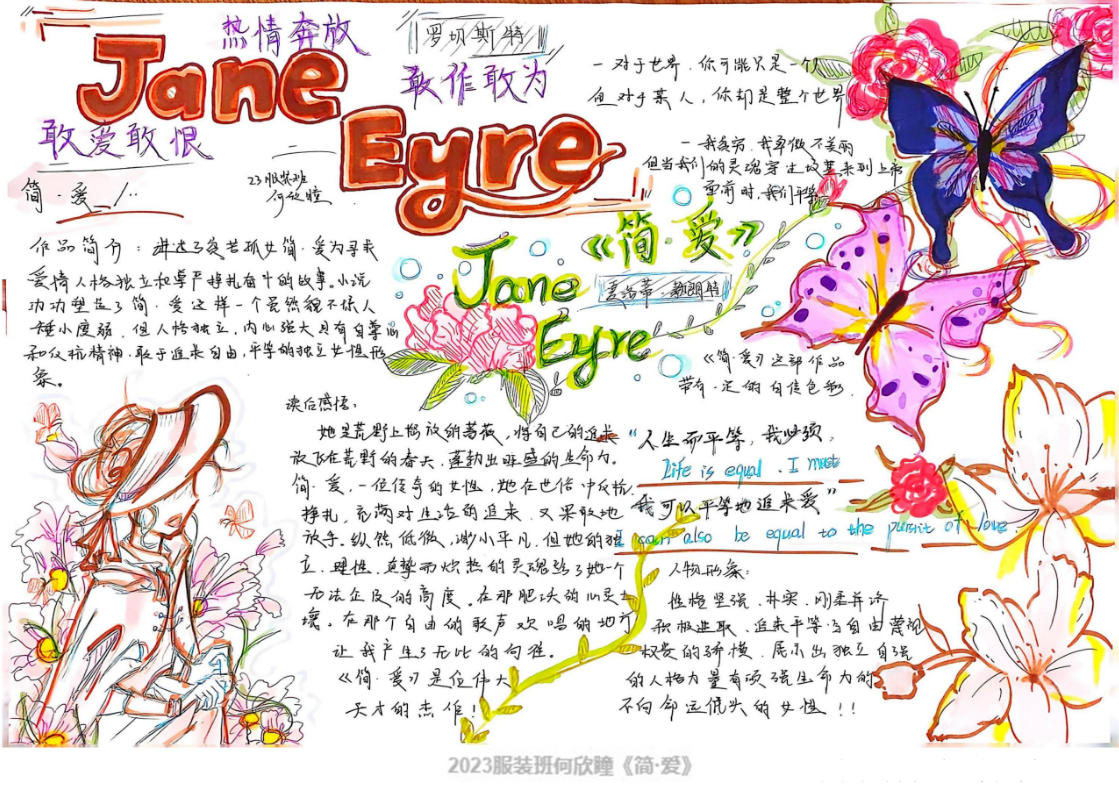 热情奔放
Jane
Eyre
敢作敢为
敢爱敢恨
简·爱
23服装班
何欣瞳
一对于世界,你可能只是一个人
但对于某人,你却是整个世界
一我贫穷,我卑微不美丽
但当我们的灵魂穿过坟墓来到上帝
面前时,我们平等
作品简介:讲述了孤女简·爱为寻求
爱情人格独立和尊严挣扎奋斗的故事。小说
功功塑造了简·爱这样一个虽然貌不惊人
矮小,但人格独立,内心强大具有自尊
和反抗精神,敢于追求自由,平等的独立女性形
象。
《简·爱》
Jane
Eyre
夏洛蒂·勃朗特
《简·爱》这部作品
带有一定的自传色彩
读后感悟:
她是荒野上怒放的蔷薇,将自己的追求
放飞在荒野的春天,蓬勃出旺盛的生命力。
简·爱,一位传奇的女性,她在世俗中反抗
挣扎,充满对生活的追求,又果敢地
放手。纵然低微,渺小平凡,但她的独
立,理性,真挚而炽热的灵魂给了她一个
无法企及的高度。在那肥沃的心灵土
壤。在那个自由的歌声欢唱的地方
让我产生了无比的向往。
《简·爱》是位伟大
天才的杰作!
“人生而平等,我必须,
Life is equal. I must
我可以平等地追求爱”
I can also be equal to the pursuit of love.
人物形象:
性格坚强,朴实,刚柔并济
积极进取,追求平等与自由蔑视
权贵的骄横,展示出独立自强
的人格力量有顽强生命力的
不向命运低头的女性!!
2023服装班何欣瞳《简·爱》